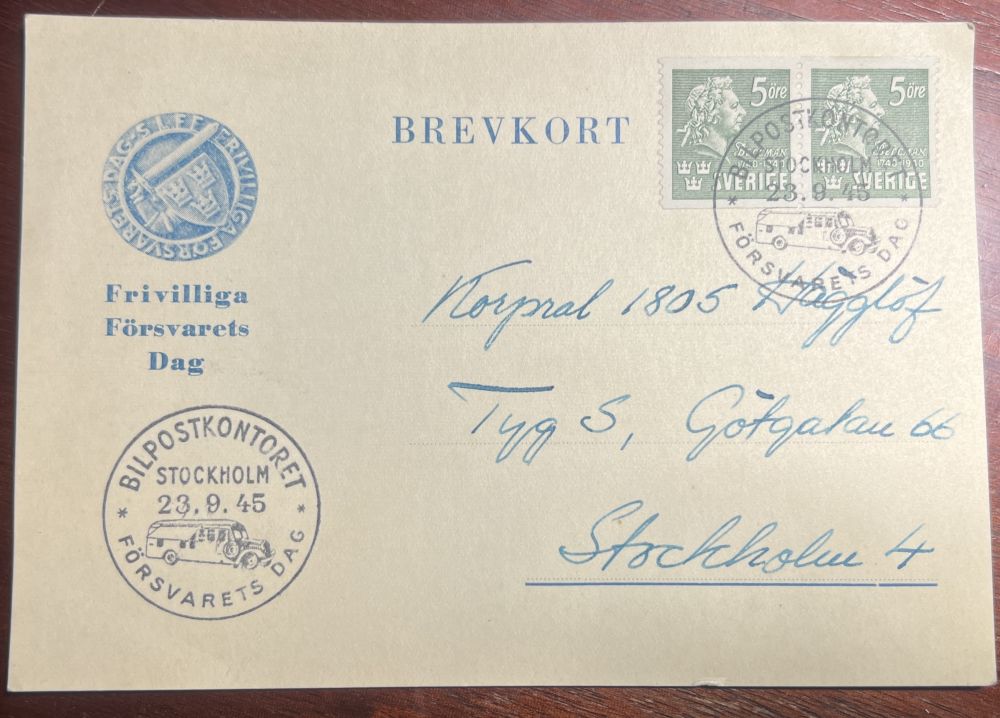 BREVKORT
5 öre
BELLMAN
1740-1940
SVERIGE
5 öre
BELLMAN
1740-1940
SVERIGE
BILPOSTKONTORET
STOCKHOLM
23.9.45
* FÖRSVARETS DAG *
FRIVILLIGA FÖRSVARETS DAG
Frivilliga
Försvarets
Dag
Korpral 1805 Hägglöf
Tyg S, Götgatan 66
Stockholm 4
BILPOSTKONTORET
STOCKHOLM
23.9.45
* FÖRSVARETS DAG *